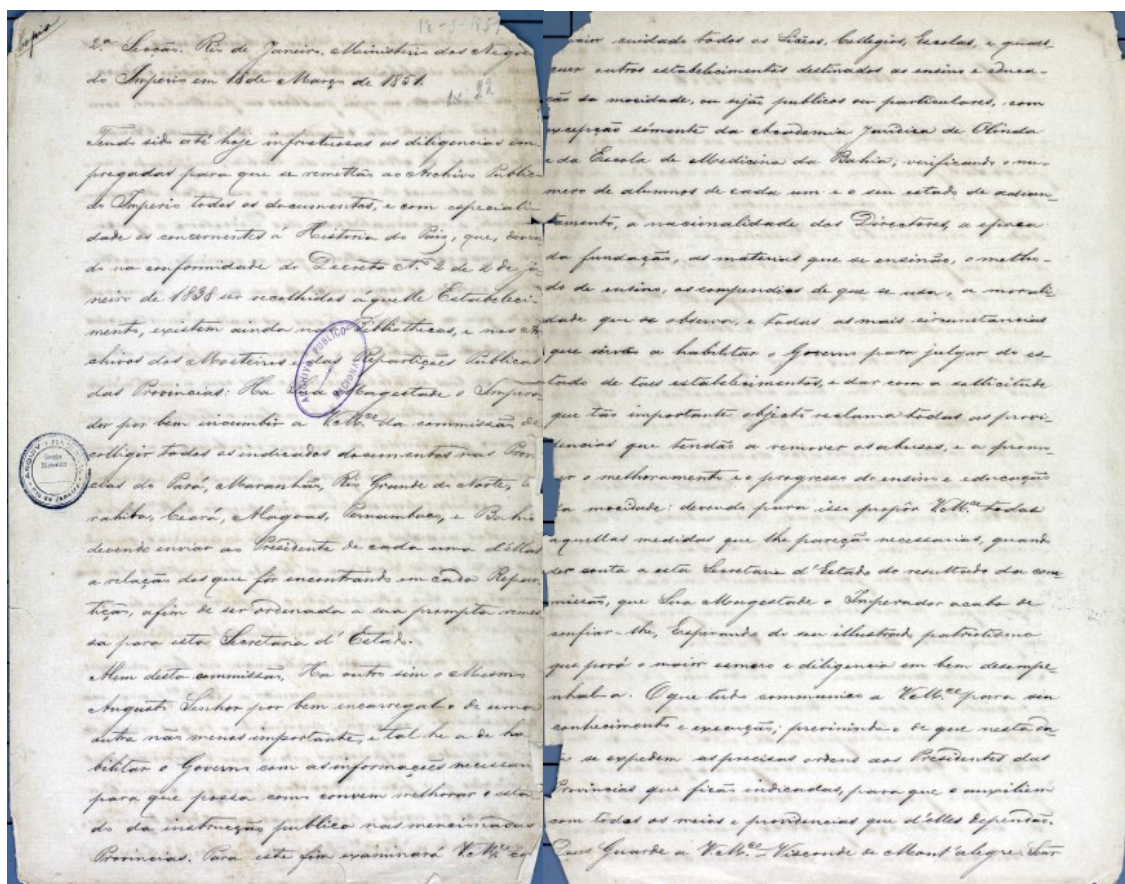 Copia
18-3-1851
2.ª Secção. Rio de Janeiro. Ministerio dos Nego
do Imperio em 18 de Março de 1851.
Tendo sido até hoje infructuosas as diligencias em
pregadas para que se remettão ao Archivo Public
do Imperio todos os documentos, e com especiali
dade os concernentes á Historia do Paiz, que, deven
do na conformidade do Decreto N.º 2 de 2 de Ja
neiro de 1838 ser recolhidos áquelle Estabeleci
mento, existem ainda nas Bibliothecas, e nos Ar
chivos dos Mosteiros e das Repartições Publicas
das Provincias: Ha Sua Magestade o Impera
dor por bem incumbir a VcM.ce da commissão de
colligir todos os indicados documentos nas Provin
cias do Pará, Maranhão, Rio Grande do Norte, Pa
rahiba, Ceará, Alagoas, Pernambuco, e Bahia
devendo enviar ao Presidente de cada uma d'ellas
a relação dos que fôr encontrando em cada Repar
tição, afim de ser ordenada a sua prompta remes
sa para esta Secretaria d'Estado.
Alem desta commissão, Ha outro sim o Mesmo
Augusto Senhor por bem encarregal-o de uma
outra não menos importante, e tal he a de ha
bilitar o Governo com as informações necessari
para que possa como convem melhorar o esta
do da instrucção publica nas mencionadas
Provincias. Para este fim examinará VcM.ce co
maior cuidado todos os Liceos, Collegios, Escolas, e quaes
quer outros estabelecimentos destinados ao ensino e educa-
ção da mocidade, ou sejão publicos ou particulares, com
excepção sómente da Academia Juridica de Olinda
e da Escola de Medicina da Bahia; verificando o nu-
mero de alumnos de cada um e o seu estado de adian-
tamento, a nacionalidade dos Directores, a epoca
da fundação, as materias que se ensinão, o metho-
do de ensino, os compendios de que se usa, a morali-
dade que se observa, e todas as mais circunstancias
que sirvão a habilitar o Governo para julgar do es
tado de taes estabelecimentos, e dar com a sollicitude
que tão importante objecto reclama todas as provi
dencias que tendão a remover os abusos, e a promo
ver o melhoramento e o progresso do ensino e educação
da mocidade: devendo para isso propôr VcM.ce todas
aquellas medidas que lhe pareção necessarias, quando
der conta a esta Secretaria d'Estado do resultado da com-
missão, que Sua Magestade o Imperador acaba de
confiar-lhe, Esperando do seu illustrado patriotismo
que porá o maior esmero e diligencia em bem desempe-
nhal-a. O que tudo communico a VcM.ce para sua
conhecimento e execução; prevenindo-o de que nesta da
ta se expedem as precisas ordens aos Presidentes das
Provincias que ficão indicadas, para que o auxiliem
com todos os meios e providencias que d'elles dependão.
Deos Guarde a VcM.ce = Visconde de Mont'alegre = Snr
ARCHIVO PUBLICO NACIONAL